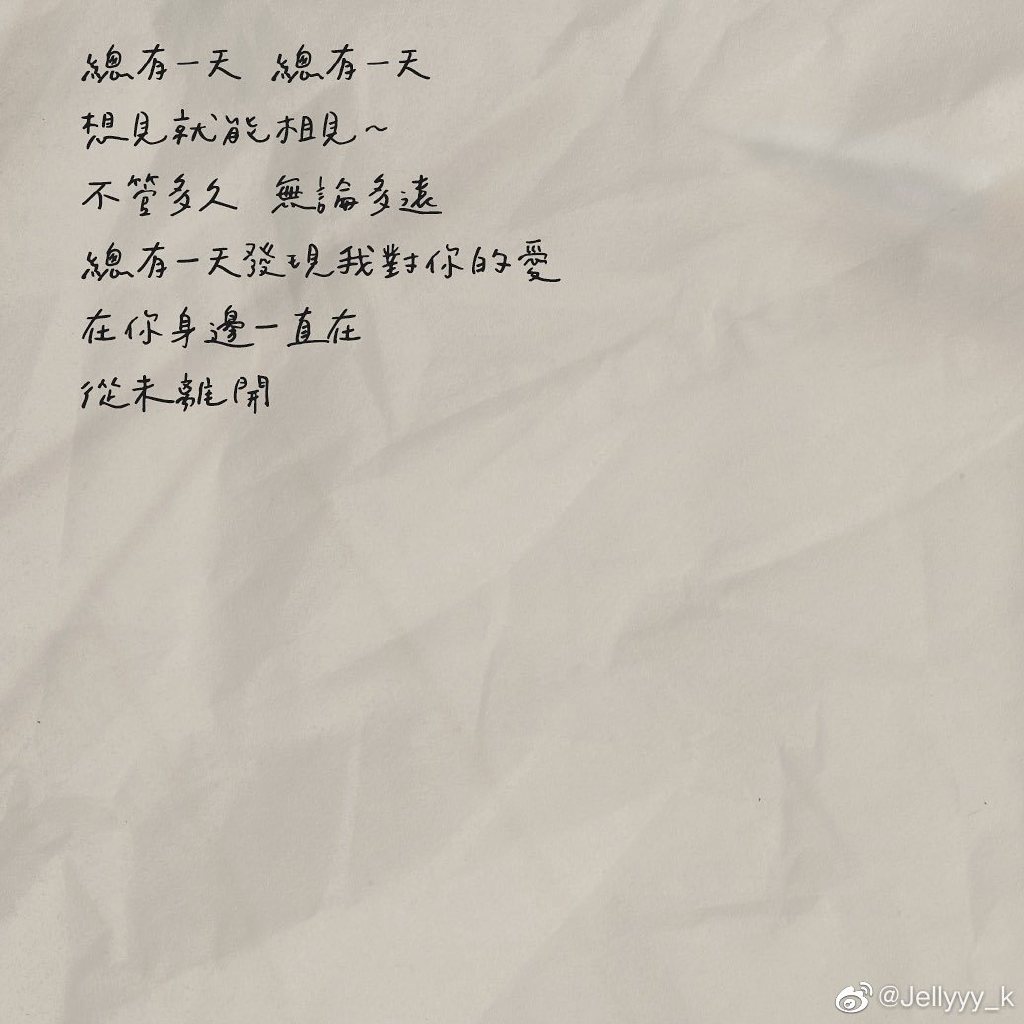 總有一天 總有一天
想見就能相見~
不管多久 無論多遠
總有一天發現我對你的愛
在你身邊一直在
從未離開
@Jellyyy_k